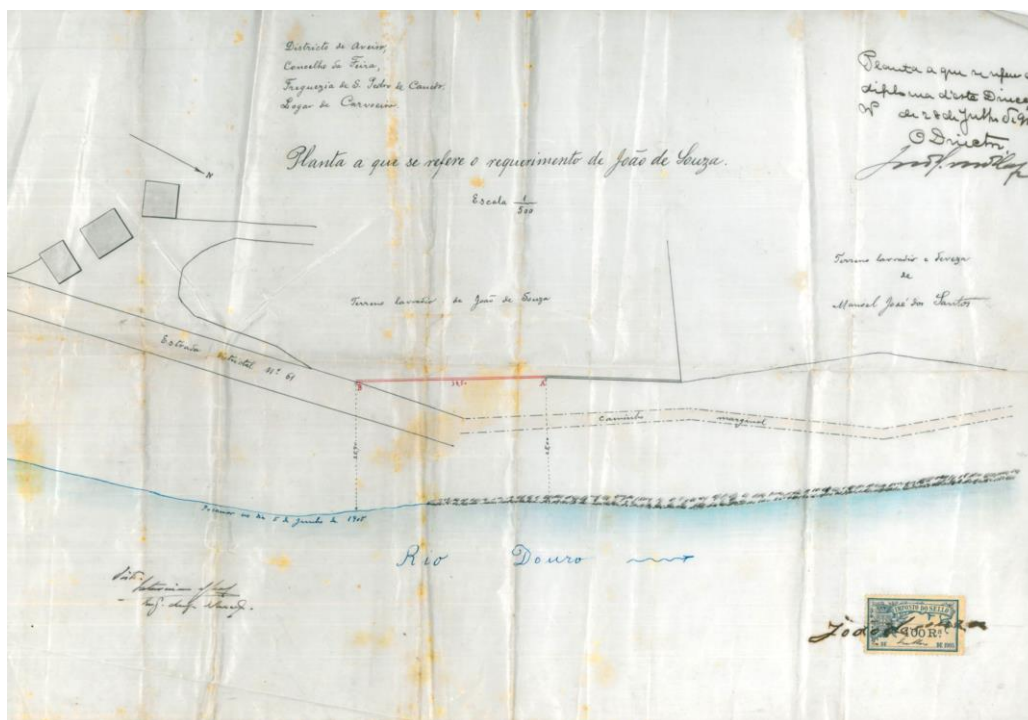 Districto de Aveiro,
Concelho da Feira,
Freguezia de S. Pedro de Canedo.
Logar de Carvoeiro.
Planta a que se refere o
diploma d'esta Direcção
Nº de 28 de Julho de 90
O Director,
Planta a que se refere o requerimento de João de Souza.
Escala 1/500
N
Terreno lavradio e deveza
de
Manoel José dos Santos
Terreno lavradio de João de Souza
Estrada districtal Nº 61
B
A
caminho marginal
Preamar no dia 5 de Junho de 1905
Rio Douro
Visto.
João de Souza
IMPOSTO DO SELLO
100 Rs
DE 1905